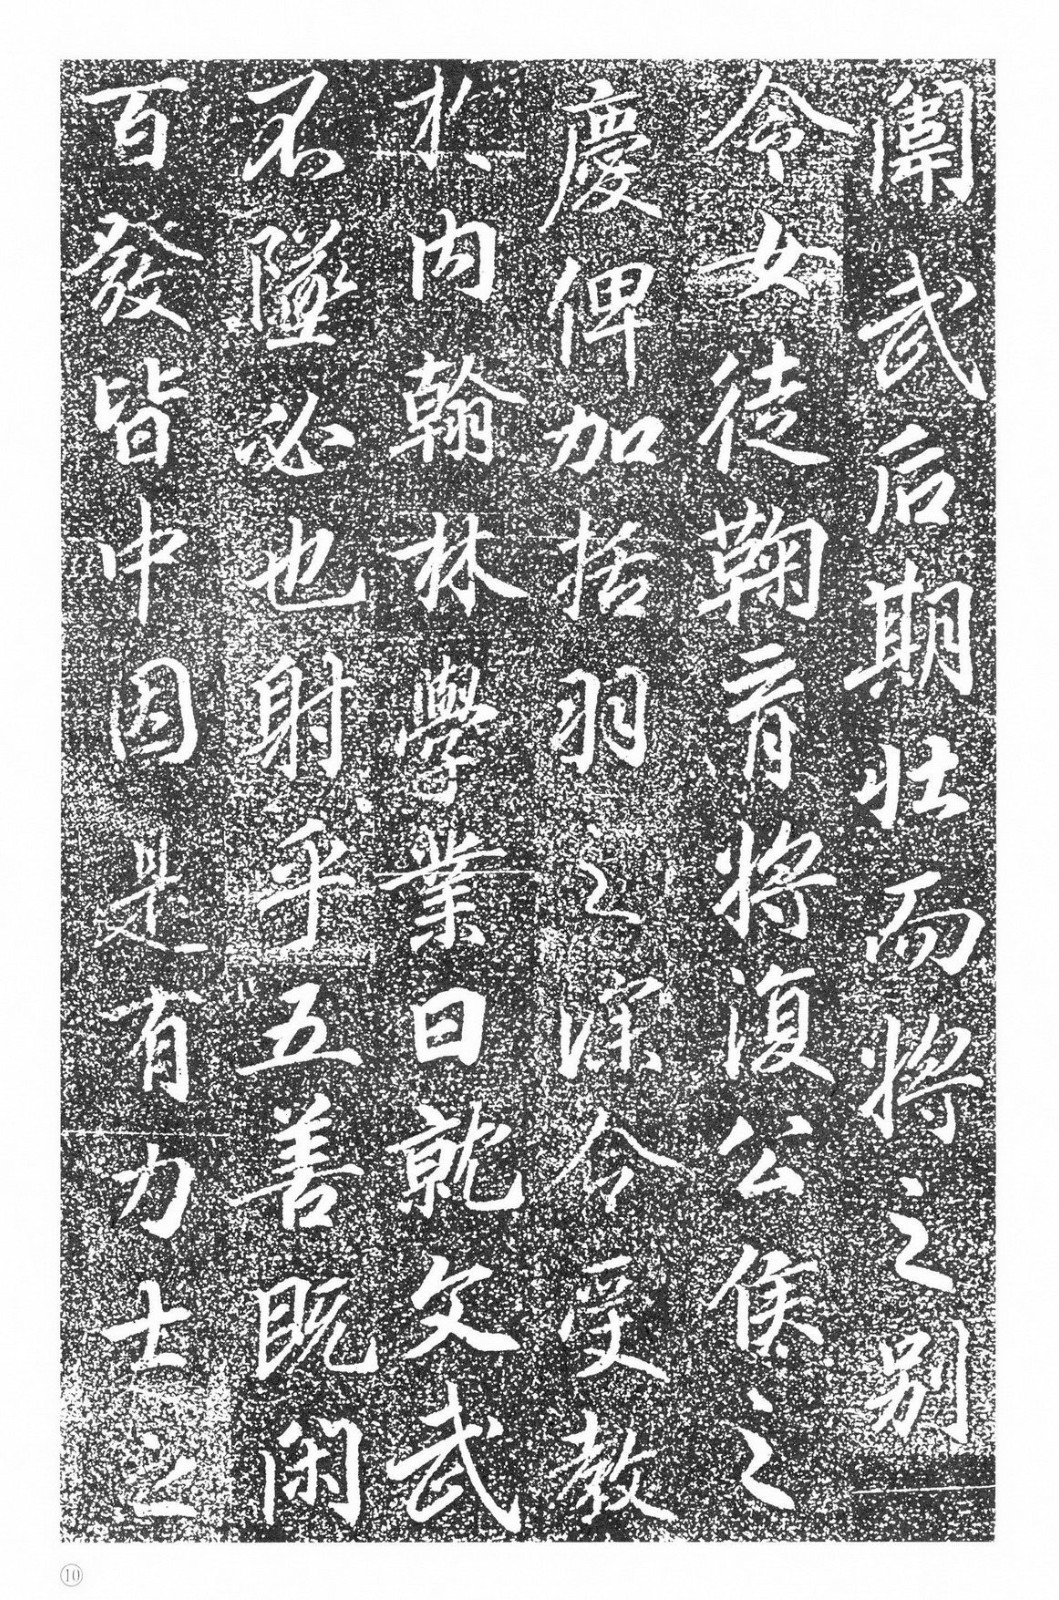 闈貳后期壯而將之別
令女徒鞠育將復公侯之
慶俾加括羽之深令受教
於內翰林學業日就文武
不墜必也射乎五善既閑
百發皆中因是有力士之
⑩